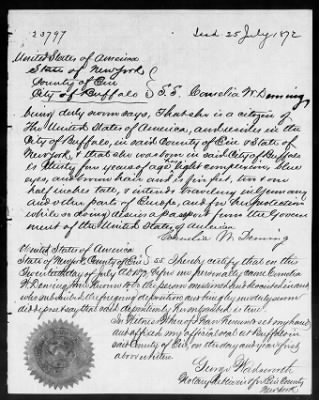 23797
Issd 25 July 1872
United States of America
State of New York
County of Erie
City of Buffalo } S.S. Cornelia W. Deming
being duly sworn says, That she is a citizen of
the United States of America, and resides in the
City of Buffalo, in said County of Erie & State of
New York, & that she was born in said City of Buffalo
is thirty four years of age, light complexion, blue
eyes, and brown hair and is five feet, two & one
half inches tall, & intends traveling in Germany
and other parts of Europe, and for her protection
while so doing desires a passport from the Govern
ment of the United States of America
Cornelia W. Deming
United States of America
State of New York, County of Erie } SS. I hereby certify that on this
day of July A.D. 1872, before me personally came Cornelia
W. Deming to me known to be the person mentioned and described in and
who subscribed the foregoing deposition and being by me duly sworn
did depose & say that said deposition by her subscribed is true.
In Witness Whereof I have hereunto set my hand
and affixed my official seal at Buffalo in
said County of Erie, on the day and year first
above written
George Wadsworth
Notary Public in & for Erie County
New York